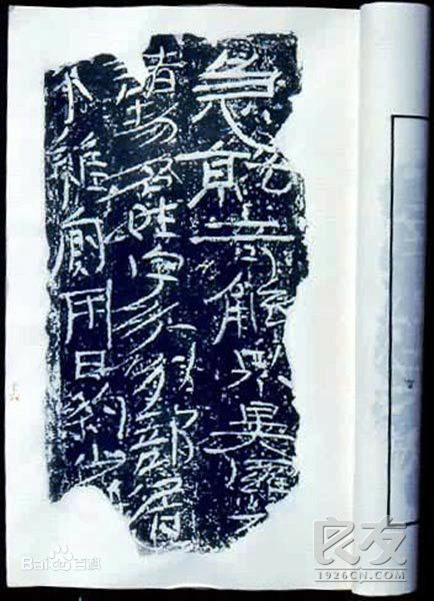 急就奇觚與衆異羅列
諸物名姓字分別部居
不雜廁用日約少
Bai百科
良友
1926CN.COM